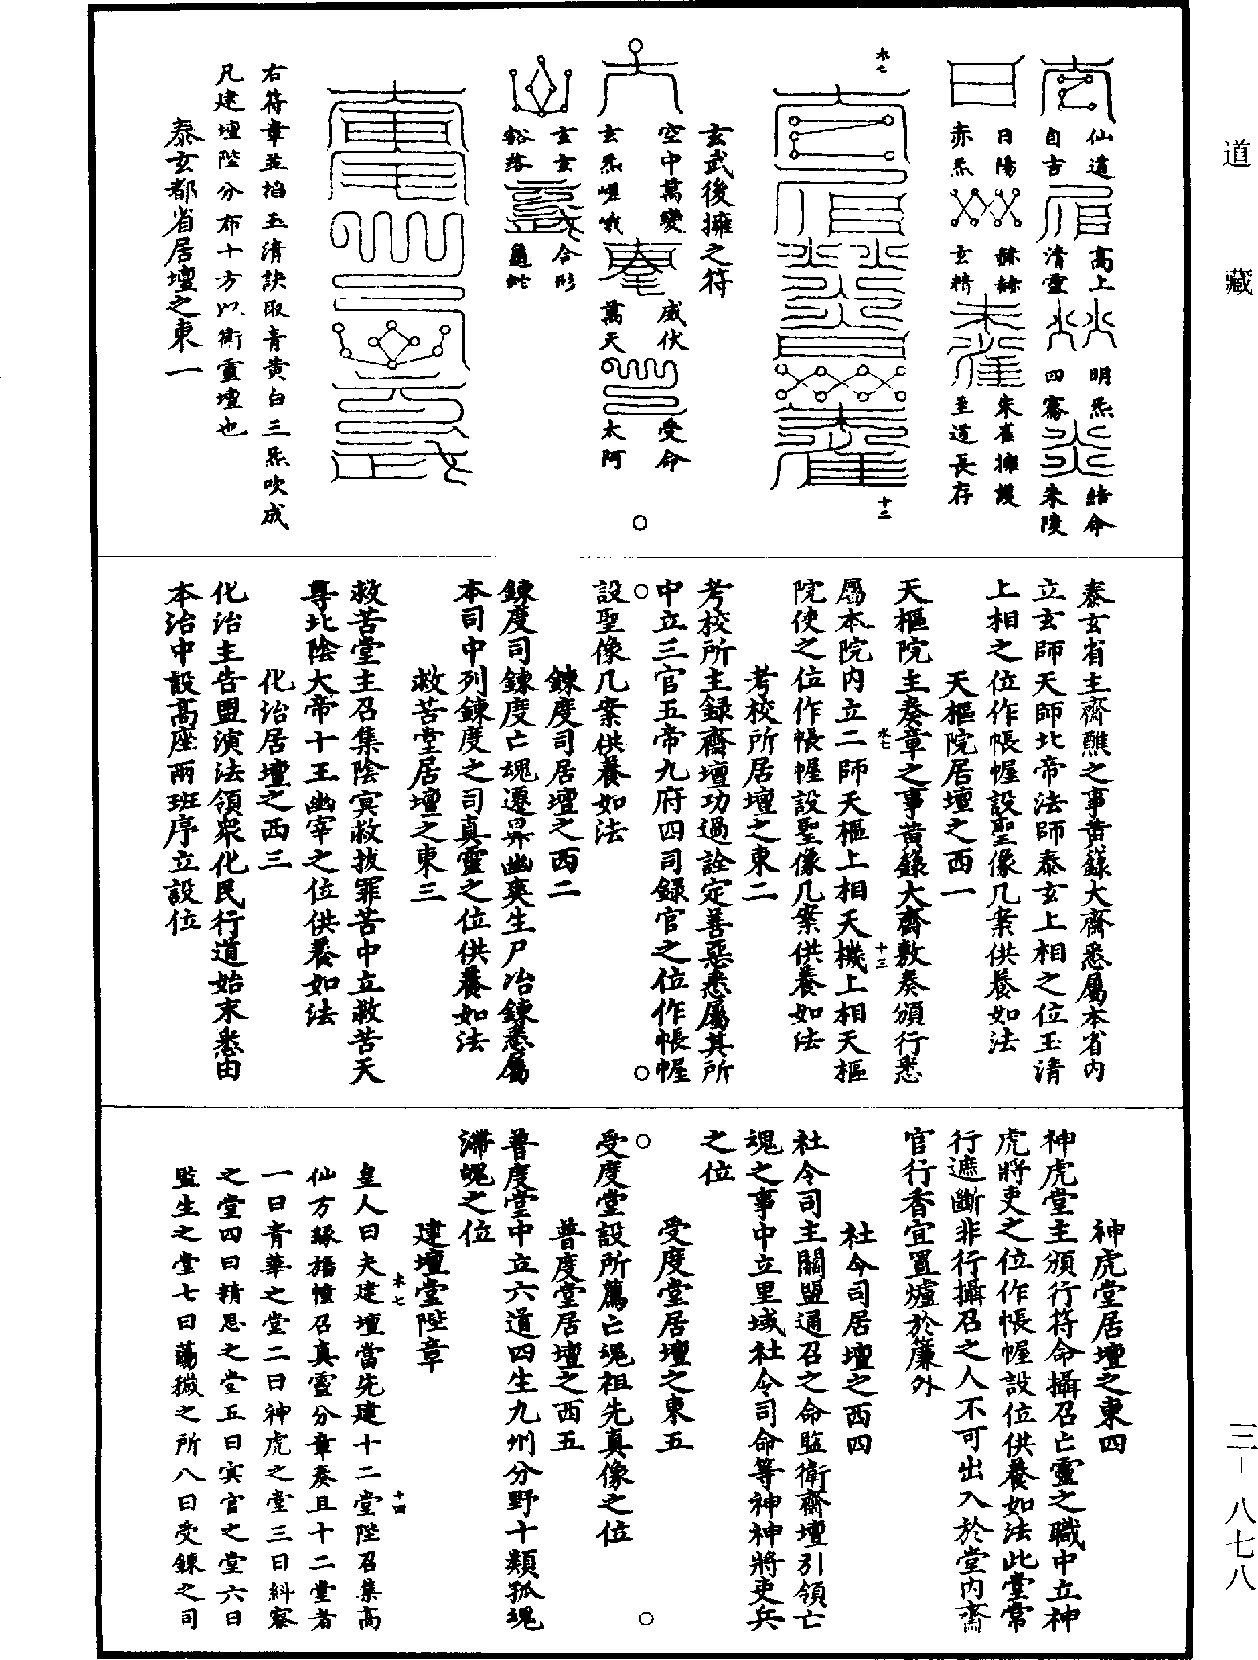 道藏
三-八七八
仙道 高上 明炁 結命
自古 清靈 四騫 朱陵
日陽 赫赫 朱雀擁護
赤炁 玄精 至道長存
木七
十二
玄武後擁之符
空中萬變 威伏 受命
玄炁 萬天 太阿
玄玄 合形
右符章並掐玉清訣取青黃白三炁吹成
凡建壇陛分布十方以衛靈壇也
泰玄都省居壇之東一
泰玄省主齋醮之事黃籙大齋悉屬本省內
立玄師天師北帝法師泰玄上相之位玉清
上相之位作帳幄設聖像几案供養如法
天樞院居壇之西一
天樞院主奏章之事黃籙大齋敷奏頒行悉
木七
十三
屬本院內立二師天樞上相天機上相天樞
院使之位作帳幄設聖像几案供養如法
考校所居壇之東二
考校所主錄齋壇功過詮定善惡悉屬其所
中立三官五帝九府四司錄官之位作帳幄
設聖像几案供養如法
鍊度司居壇之西二
鍊度司鍊度亡魂遷昇幽爽生尸冶鍊悉屬
本司中列鍊度之司真靈之位供養如法
救苦堂居壇之東三
救苦堂主召集陰冥救拔罪苦中立救苦天
尊北陰大帝十王幽宰之位供養如法
化治居壇之西三
化治主告盟演法領眾化民行道始末悉由
本治中設高座兩班序立設位
神虎堂居壇之東四
神虎堂主頒行符命攝召亡靈之職中立神
虎將吏之位作帳幄設位供養如法此堂常
行遮斷非行攝召之人不可出入於堂內齋
官行香宜置爐於簾外
社令司居壇之西四
社令司主關盟通召之命監衛齋壇引領亡
魂之事中立里域社令司命等神神將吏兵
之位
受度堂居壇之東五
受度堂設所薦亡魂祖先真像之位
普度堂居壇之西五
普度堂中立六道四生九州分野十類孤魂
滯魄之位
建壇堂陛章
木七
十四
皇人曰夫建壇當先建十二堂陛召集高
仙方緣旛幢召真靈分章奏且十二堂者
一曰青華之堂二曰神虎之堂三曰糾察
之堂四曰精思之堂五曰冥官之堂六曰
監生之堂七曰蕩穢之所八曰受鍊之司